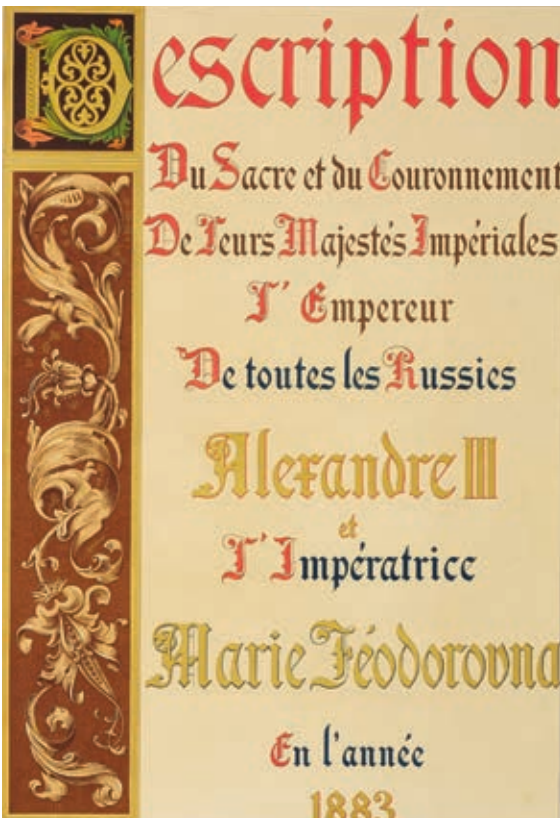 Description
Du Sacre et du Couronnement
De Leurs Majestés Impériales
L' Empereur
De toutes les Russies
Alexandre III
et
L' Impératrice
Marie Féodorovna
En l'année
1883